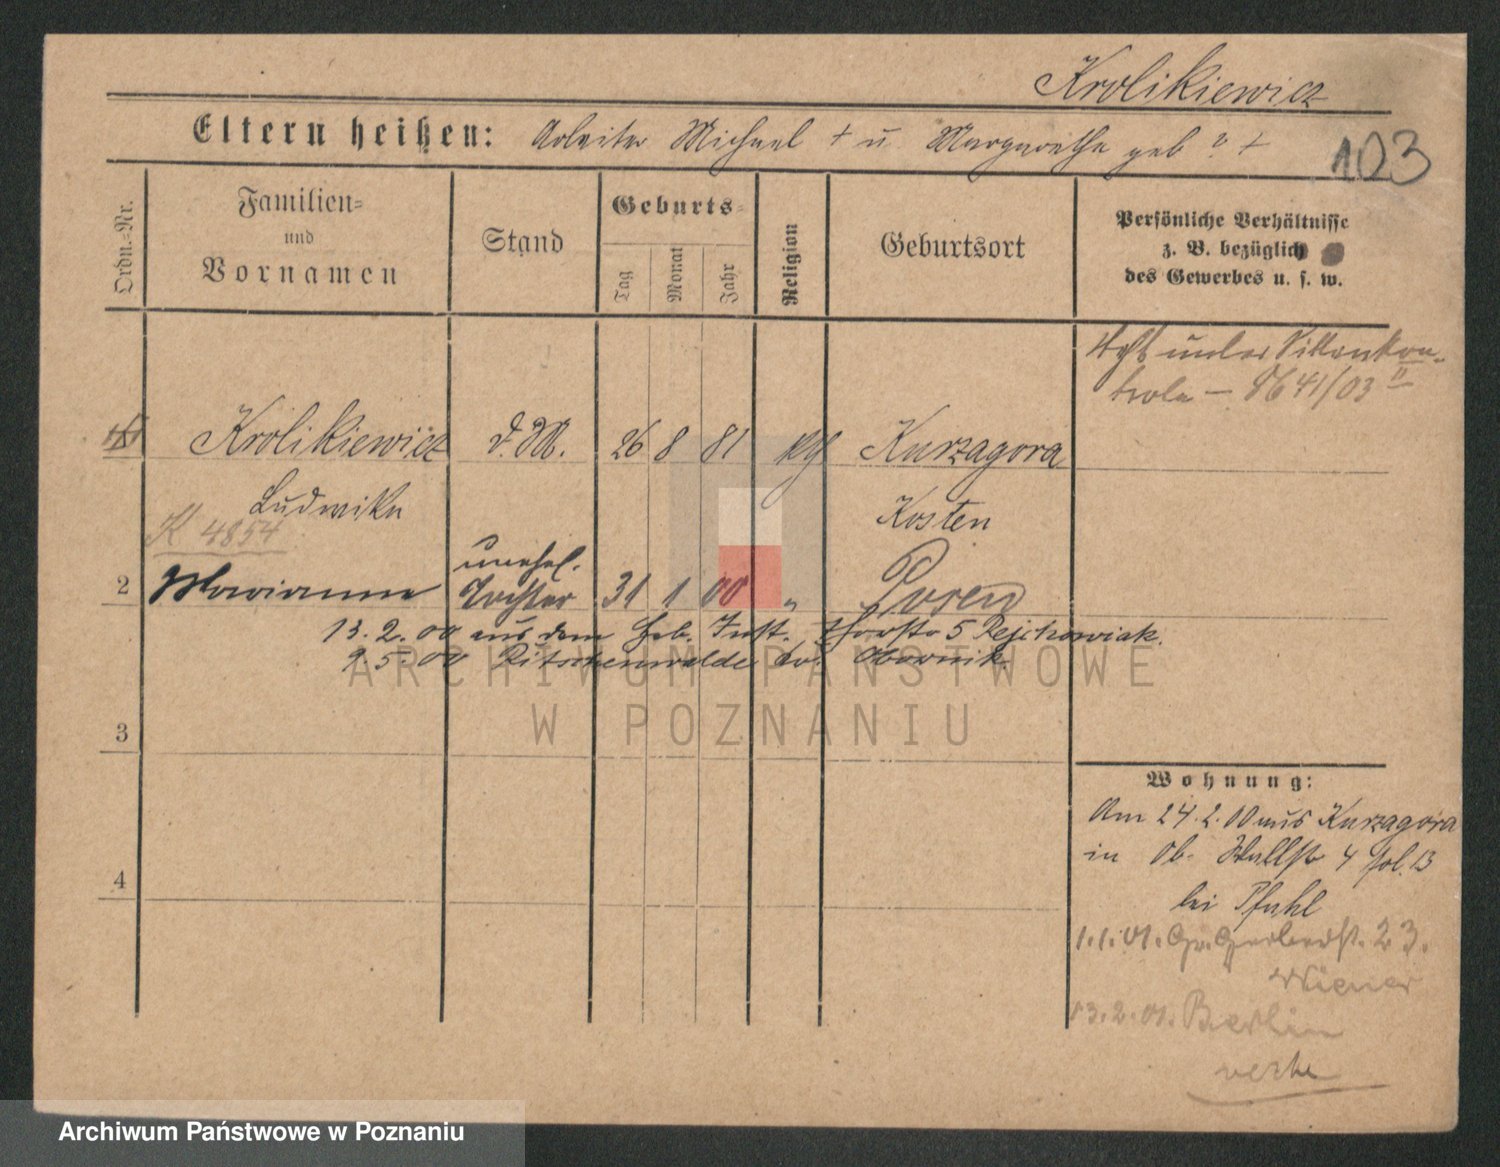 Krolikiewicz
Eltern heißen: Arbeiter Michael † u Margarethe geb ? †
103
Ordn.-Nr.
Familien-
und
Vornamen
Stand
Geburts-
Tag
Monat
Jahr
Religion
Geburtsort
Persönliche Verhältnisse
z. B. bezüglich
des Gewerbes u. s. w.
Steht unter Sittenkon-
trole — 41/03 II
1
Krolikiewicz
d. M.
26 8 81
Kurzagora
Ludwika
Kosten
K 4854
2
Marianna
unehel.
Tochter
31 1 00
"
Posen
13.2.00 aus dem Geb. Inst. 5 Rejchowiak.
9.5.00 Ritschenwalde Kr. Obornik.
ARCHIWUM PAŃSTWOWE
W POZNANIU
3
4
Wohnung:
Am 24.2.00 aus Kurzagora
in Ob. Wallstr 4 fol. 13
bei Pfahl
1.1.01. Gr. Gerberst. 23.
Wiener
13.2.01. Berlin
Archiwum Państwowe w Poznaniu